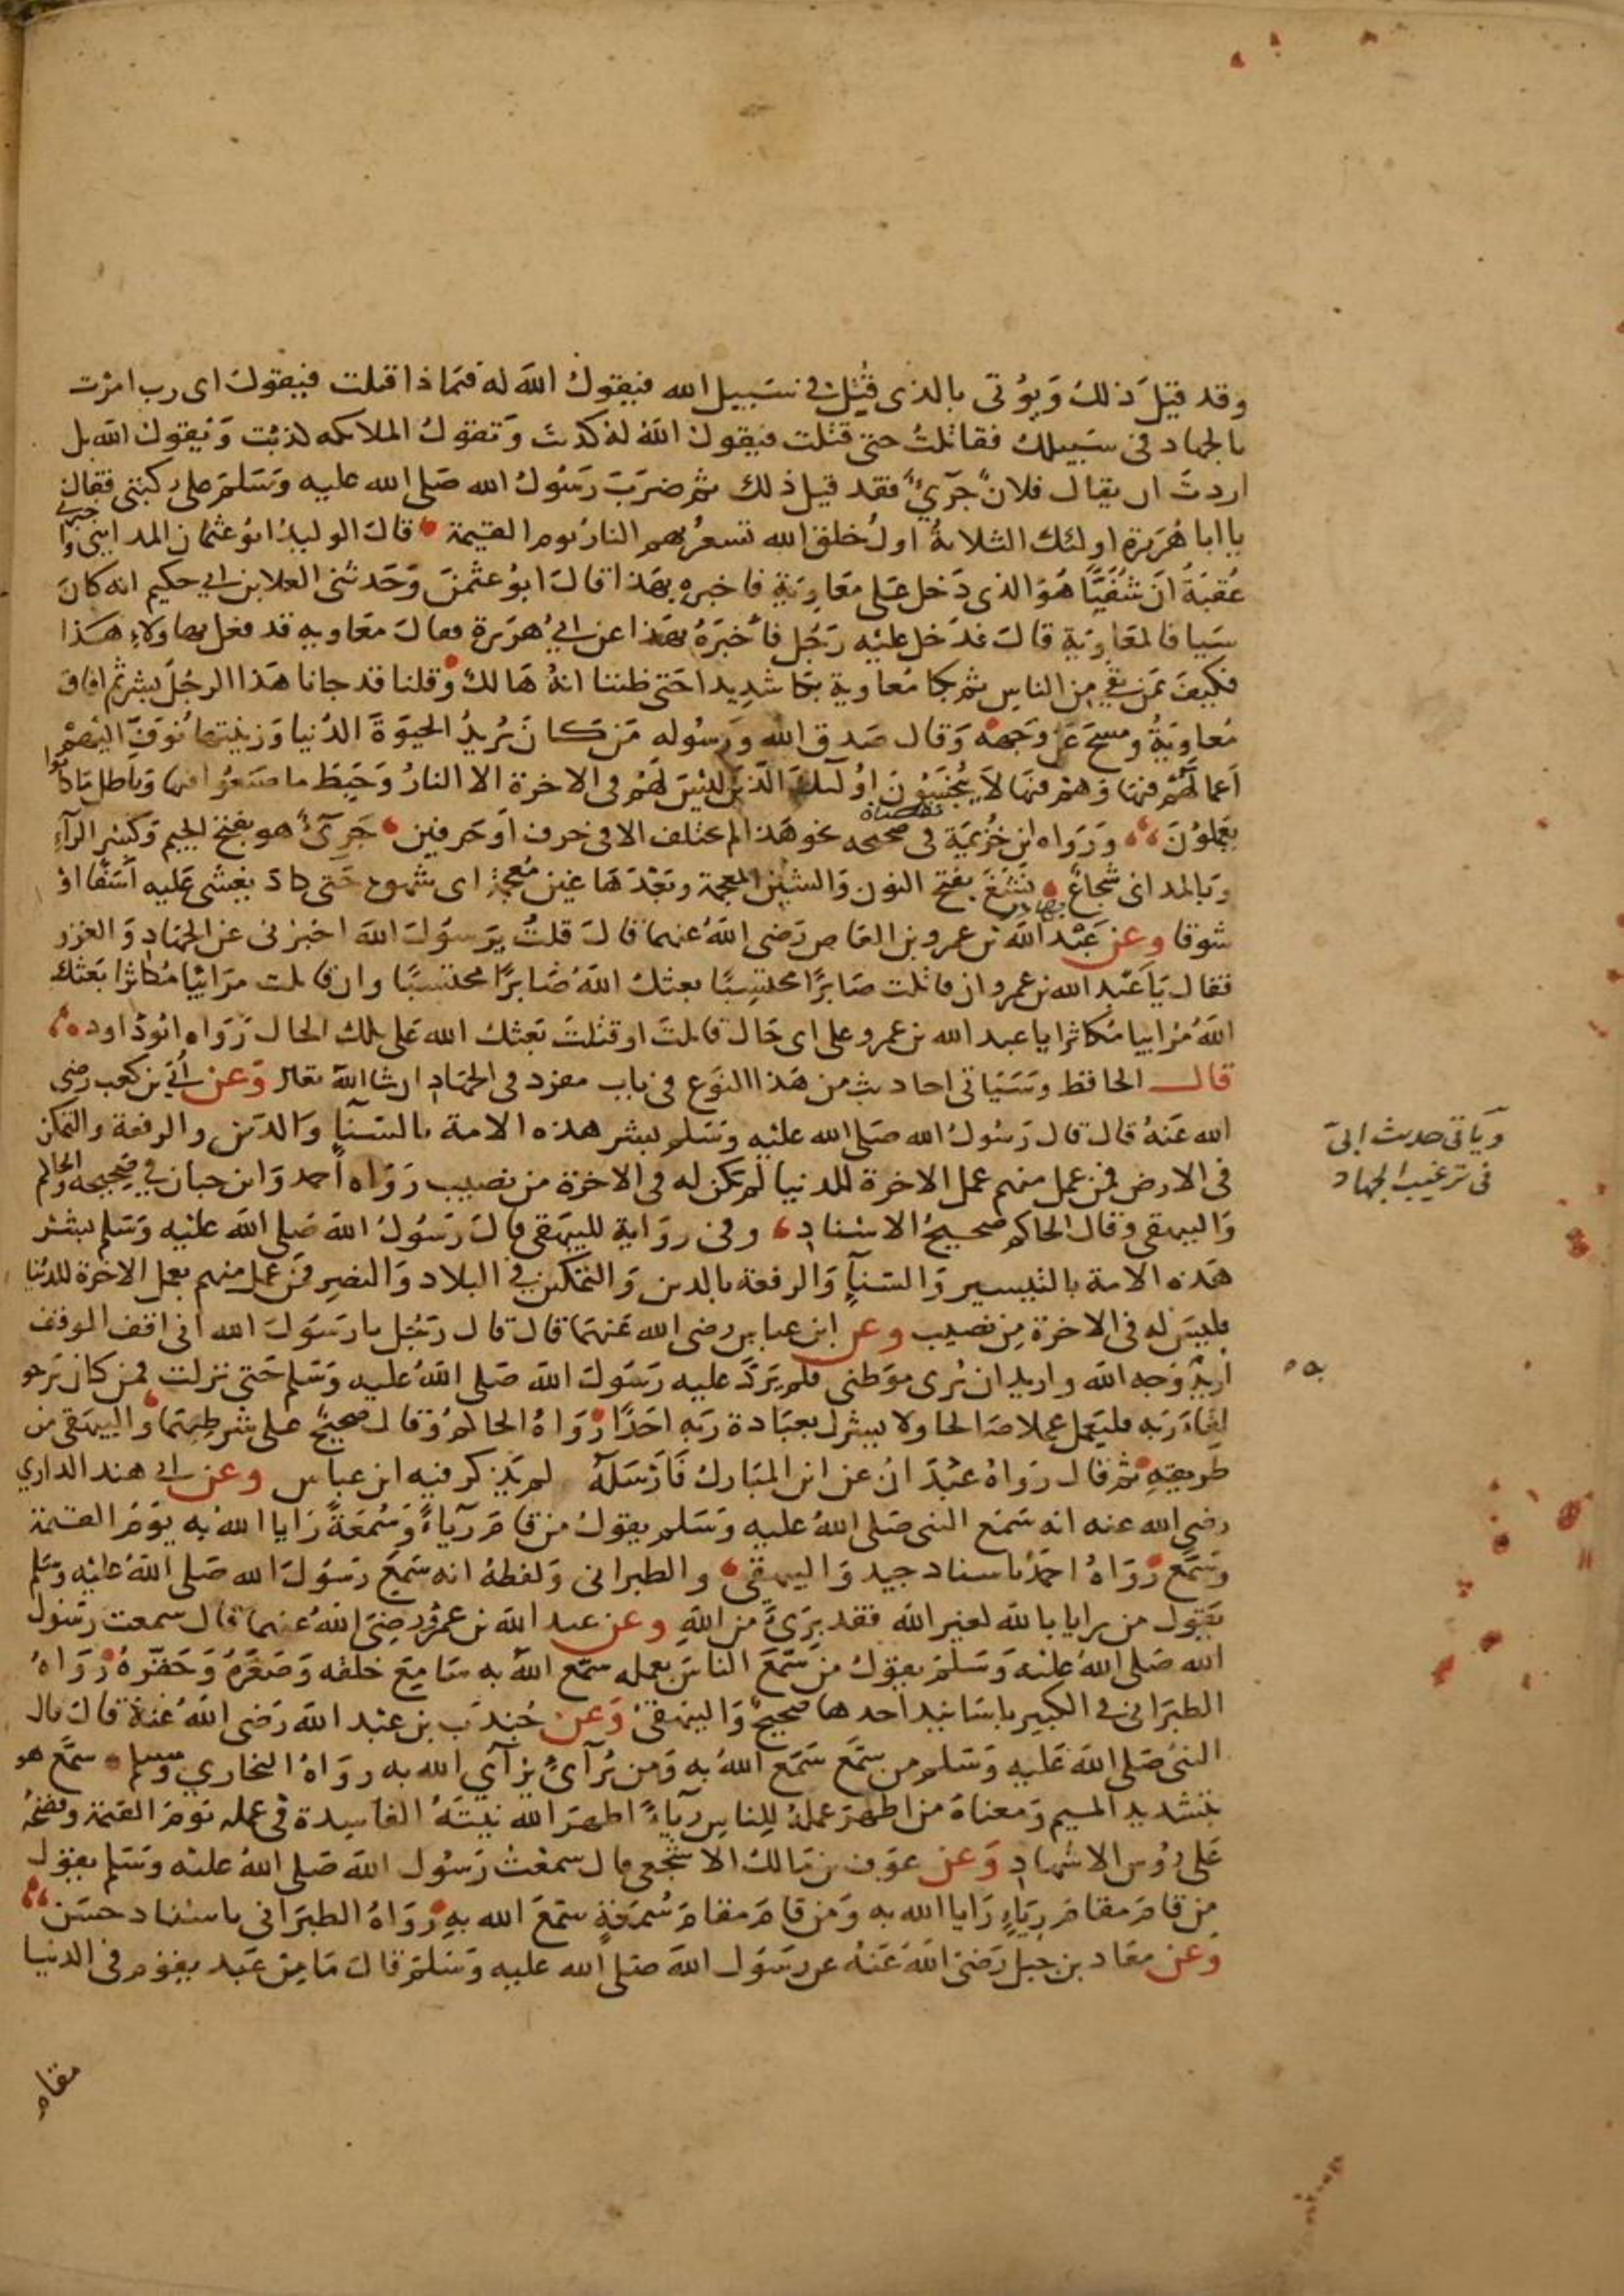 وقد قيل ذلك ويوتى بالذى قتل فى سبيل الله فيقول الله له فبماذا قتلت فيقول اى رب امرت
بالجهاد فى سبيلك فقاتلت حتى قتلت فيقول الله له كذبت وتقول الملائكه كذبت ويقول الله بل
اردت ان يقال فلان جرىء فقد قيل ذلك ثم ضرب رسول الله صلى الله عليه وسلم على ركبتى فقال
يا ابا هريرة اولئك الثلاثة اول خلق الله تسعر بهم النار يوم القيمة قال الوليد ابو عثمان المداينى واخبرنى
عقبة ان شفيا هو الذى دخل على معاوية فاخبره بهذا قال ابو عثمن وحدثنى العلا بن ابي حكيم انه كان
سيافا لمعاوية قال فدخل عليه رجل فأخبره بهذا عن ابي هريرة فقال معاويه قد فعل بهاولاء هكذا
فكيف بمن بقي من الناس ثم بكا معاوية بكا شديدا حتى ظننا انه هالك وقلنا قد جانا هذا الرجل بشر ثم افاق
معاوية ومسح عن وجهه وقال صدق الله ورسوله من كان يريد الحيوة الدنيا وزينتها نوف اليهم
اعمالهم فيها وهم فيها لا يبخسون اولئك الذين ليس لهم فى الاخرة الا النار وحبط ما صنعوا فيها وباطل ما كانوا
يعملون ورواه ابن خزيمة فى صحيحه نحو هذا لم يختلف الا فى حرف او حرفين جرىء هو بفتح الجيم وكسر الرآء
وبالمد اى شجاع نشغ بفتح النون والشين المعجمة وبعدها غين معجمة اى شهق حتى كاد يغشى عليه أسفا او
شوقا وعن عبد الله بن عمرو بن العاص رضى الله عنهما قال قلت يرسول الله اخبرنى عن الجهاد والغزو
فقال يا عبد الله بن عمرو ان قاتلت صابرا محتسبا بعثك الله صابرا محتسبا وان قاتلت مرائيا مكاثرا بعثك
الله مرائيا مكاثرا يا عبد الله بن عمرو على اى حال قاتلت او قتلت بعثك الله على تلك الحال رواه ابوداود
قال الحافظ وسياتى احاديث من هذا النوع فى باب مفرد فى الجهاد ان شا الله تعالى وعن أبي بن كعب رضى
الله عنه قال قال رسول الله صلى الله عليه وسلم بشر هذه الامة بالسنآ والدين والرفعة والتمكن
فى الارض فمن عمل منهم عمل الاخرة للدنيا لم يكن له فى الاخرة من نصيب رواه أحمد وابن حبان في صحيحه والحاكم
والبيهقى وقال الحاكم صحيح الاسناد وفى رواية للبيهقى قال رسول الله صلى الله عليه وسلم بشر
هذه الامة بالتيسير والسنآء والرفعة بالدين والتمكين في البلاد والنصر فمن عمل منهم بعمل الاخرة للدنيا
فليس له فى الاخرة من نصيب وعن ابن عباس رضى الله عنهما قال قال رجل يا رسول الله انى اقف الموقف
اريد وجه الله واريد ان يرى موطنى فلم يرد عليه رسول الله صلى الله عليه وسلم حتى نزلت فمن كان يرجو
لقاء ربه فليعمل عملا صالحا ولا يشرك بعبادة ربه احدا رواه الحاكم وقال صحيح على شرطهما والبيهقى من
طريقه ثم قال رواه عبدان عن ابن المبارك فأرسله لم يذكر فيه ابن عباس وعن ابي هند الداري
رضى الله عنه انه سمع النبى صلى الله عليه وسلم يقول من قام رآياء وسمعة رايا الله به يوم القيمة
وسمع رواه احمد باسناد جيد والبيهقى والطبرانى ولفظه انه سمع رسول الله صلى الله عليه وسلم
يقول من رايا بالله لغير الله فقد برى من الله وعن عبد الله بن عمرو رضى الله عنهما قال سمعت رسول
الله صلى الله عليه وسلم يقول من سمع الناس بعمله سمع الله به سامع خلقه وصغره وحقره رواه
الطبرانى في الكبير باسانيد احدها صحيح والبيهقى وعن جندب بن عبد الله رضى الله عنه قال قال
النبى صلى الله عليه وسلم من سمع سمع الله به ومن يرآى يرآي الله به رواه البخاري ومسلم سمع هو
بتشديد الميم ومعناه من اظهر عمله للناس رياء اظهر الله نيته الفاسدة فى عمله يوم القيمة وفضحه
على روس الاشهاد وعن عوف بن مالك الاشجعى قال سمعت رسول الله صلى الله عليه وسلم يقول
من قام مقام رياء رايا الله به ومن قام مقام سمعة سمع الله به رواه الطبرانى باسناد حسن
وعن معاد بن جبل رضى الله عنه عن رسول الله صلى الله عليه وسلم قال ما من عبد يقوم فى الدنيا
مقام
وياتى حديث ابى
فى ترغيب الجهاد
به